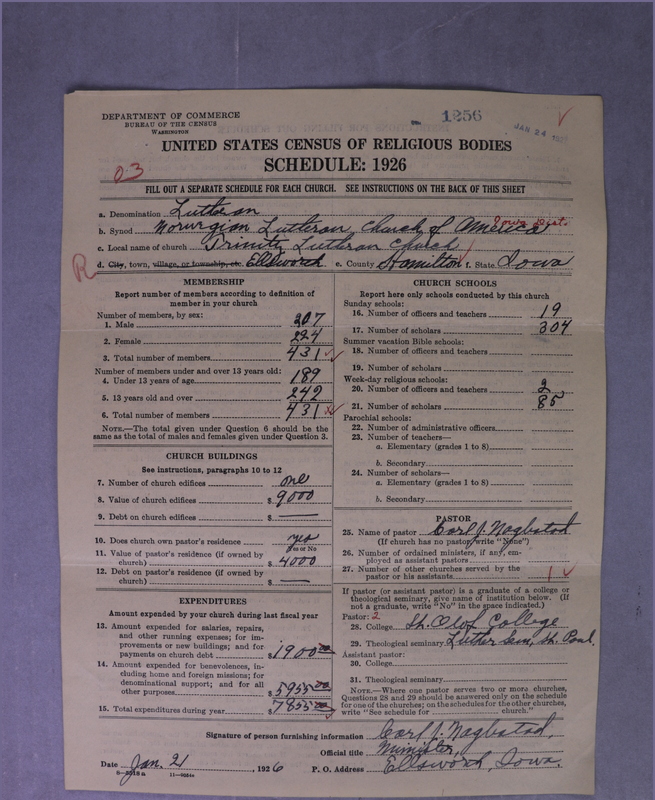 DEPARTMENT OF COMMERCE
BUREAU OF THE CENSUS
WASHINGTON
1256
JAN 24
UNITED STATES CENSUS OF RELIGIOUS BODIES
SCHEDULE: 1926
03
FILL OUT A SEPARATE SCHEDULE FOR EACH CHURCH. SEE INSTRUCTIONS ON THE BACK OF THIS SHEET
a. Denomination Lutheran
b. Synod Norwegian Lutheran Church of America Iowa Dist.
c. Local name of church Trinity Lutheran Church
d. City, town, village, or township, etc. Ellsworth e. County Hamilton f. State Iowa
R
MEMBERSHIP
Report number of members according to definition of
member in your church
Number of members, by sex:
1. Male 207
2. Female 224
3. Total number of members 431
Number of members under and over 13 years old:
4. Under 13 years of age 189
5. 13 years old and over 242
6. Total number of members 431
NOTE.—The total given under Question 6 should be the
same as the total of males and females given under Question 3.
CHURCH BUILDINGS
See instructions, paragraphs 10 to 12
7. Number of church edifices one
8. Value of church edifices $ 9000
9. Debt on church edifices $ —
10. Does church own pastor's residence? yes
Yes or No
11. Value of pastor's residence (if owned by
church) $ 4000
12. Debt on pastor's residence (if owned by
church) $ —
EXPENDITURES
Amount expended by your church during last fiscal year
13. Amount expended for salaries, repairs,
and other running expenses; for im-
provements or new buildings; and for
payments on church debt $ 1900.00
14. Amount expended for benevolences, in-
cluding home and foreign missions; for
denominational support; and for all
other purposes $ 5955.00
15. Total expenditures during year $ 7855.00
CHURCH SCHOOLS
Report here only schools conducted by this church
Sunday schools:
16. Number of officers and teachers 19
17. Number of scholars 304
Summer vacation Bible schools:
18. Number of officers and teachers
19. Number of scholars
Week-day religious schools:
20. Number of officers and teachers 2
21. Number of scholars 85
Parochial schools:
22. Number of administrative officers
23. Number of teachers—
a. Elementary (grades 1 to 8)
b. Secondary
24. Number of scholars—
a. Elementary (grades 1 to 8)
b. Secondary
PASTOR
25. Name of pastor Carl J. Nagbstad
(If church has no pastor, write "None")
26. Number of ordained ministers, if any, em-
ployed as assistant pastors
27. Number of other churches served by the
pastor or his assistants 1
If pastor (or assistant pastor) is a graduate of a college or
theological seminary, give name of institution below. (If
not a graduate, write "No" in the space indicated.)
Pastor: 2
28. College St. Olof College
29. Theological seminary Luther Sem, St. Paul.
Assistant pastor:
30. College
31. Theological seminary
NOTE.—Where one pastor serves two or more churches,
Questions 28 and 29 should be answered only on the schedule
for one of the churches; on the schedules for the other churches,
write "See schedule for church."
Signature of person furnishing information Carl J. Nagbstad,
Official title Minister,
Date Jan. 21, 1926 P. O. Address Ellsworth, Iowa.
8-5518a 11-9054